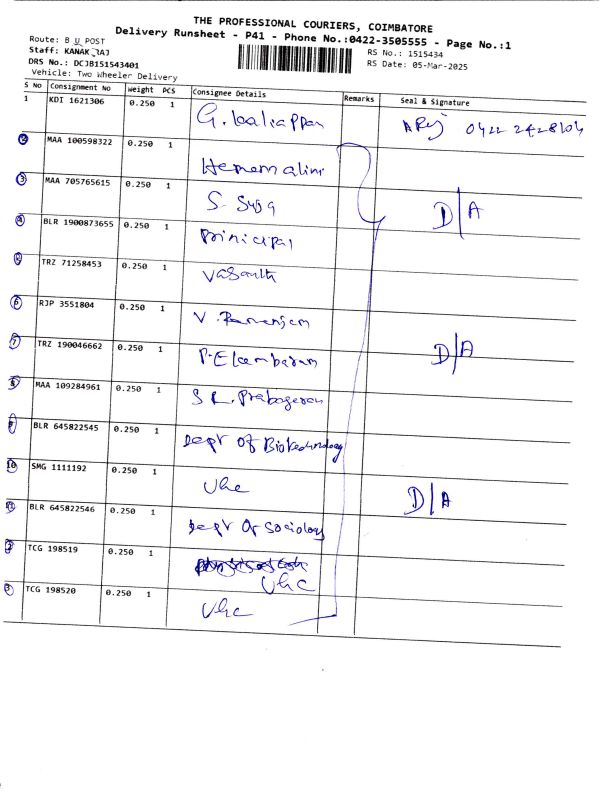 THE PROFESSIONAL COURIERS, COIMBATORE
Delivery Runsheet - P41 - Phone No.:0422-3505555 - Page No.:1
Route: B U POST
RS No.: 1515434
Staff: KANAK RAJ
RS Date: 05-Mar-2025
DRS No.: DCJB151543401
Vehicle: Two Wheeler Delivery
S No Consignment No Weight PCS Consignee Details Remarks Seal & Signature
1 KDI 1621306 0.250 1 G. kaliappan 0422 2428104
2 MAA 100598322 0.250 1 Hemamalini
3 MAA 705765615 0.250 1 S. Suja D/A
4 BLR 1900873655 0.250 1 Prinicipal
5 TRZ 71258453 0.250 1 Vasanth
6 RJP 3551804 0.250 1 V.
7 TRZ 190046662 0.250 1 P. Elambaram D/A
8 MAA 109284961 0.250 1 S L. Prabageran
9 BLR 645822545 0.250 1 Dept Of Biotechnology
10 SMG 1111192 0.250 1 Uhc D/A
11 BLR 645822546 0.250 1 Dept Of Sociology
2 TCG 198519 0.250 1 Uhc
3 TCG 198520 0.250 1 Uhc